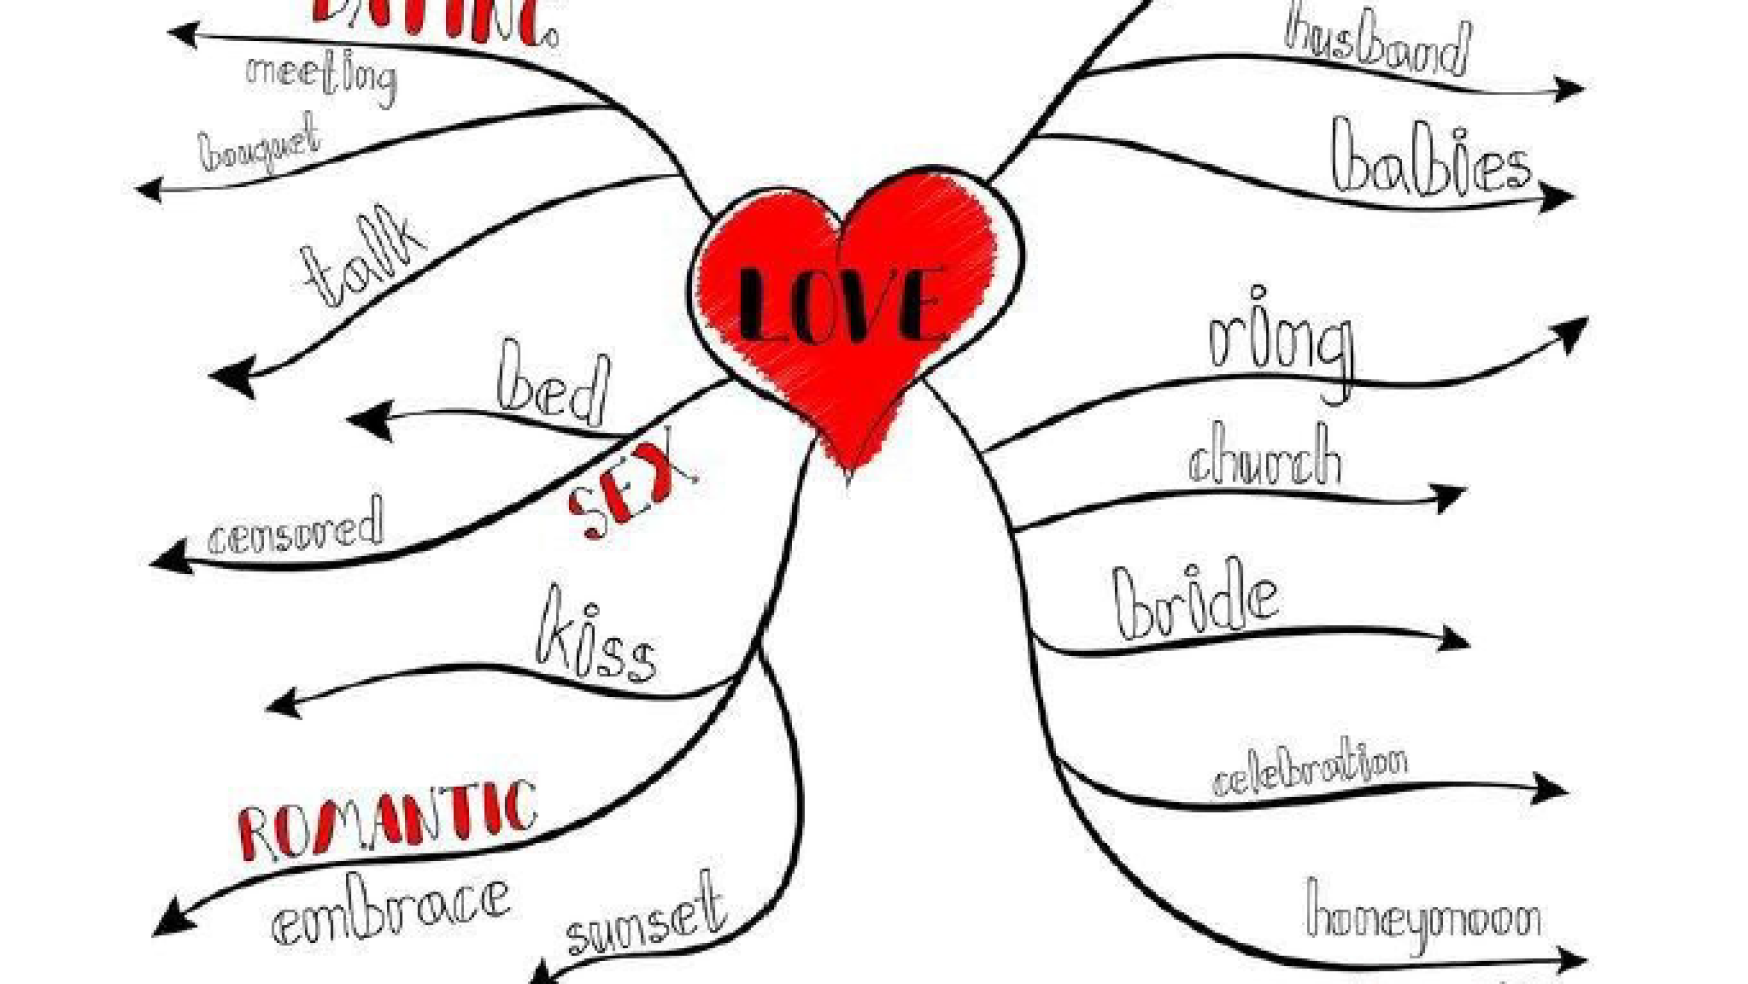 DATING
meeting
bouquet
talk
bed
SEX
censored
kiss
ROMANTIC
embrace
sunset
LOVE
husband
babies
ring
church
bride
celebration
honeymoon